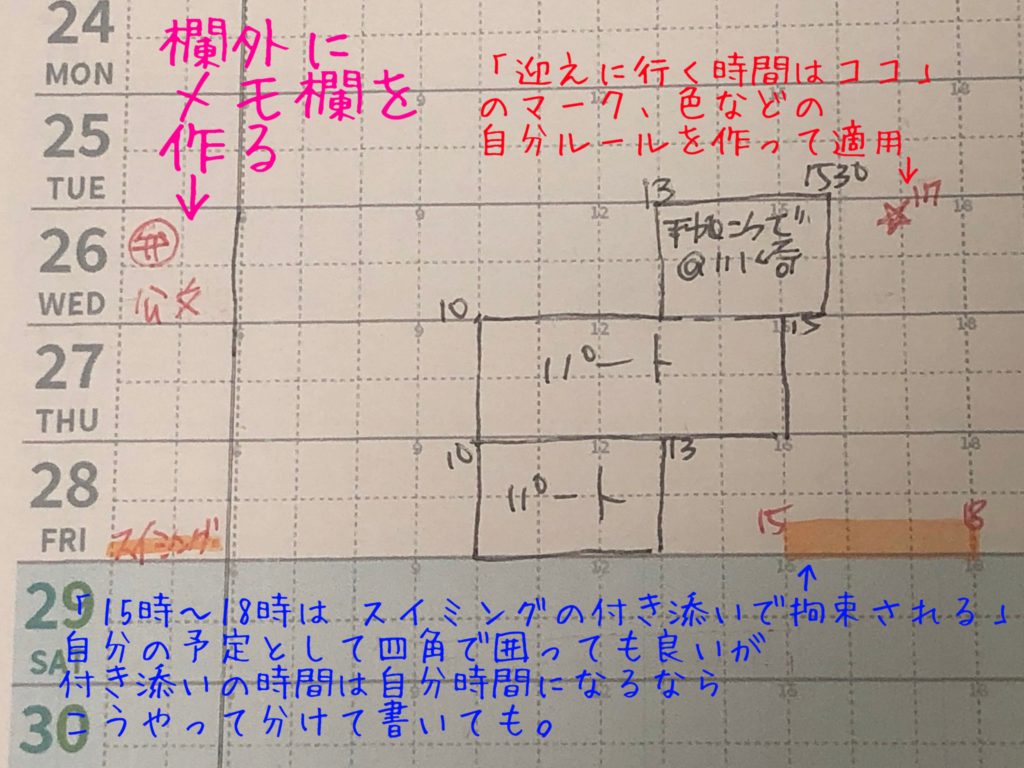 24
MON
欄外に
メモ欄を
作る
↓
「迎えに行く時間はココ」
のマーク、色などの
自分ルールを作って適用
↓
25
TUE
13 1530
☆17
6 9 12 15 18
26
WED
弁
公文
@川崎
10 15
6 9 12 15 18
27
THU
パート
10 13
6 9 12 15 18
28
FRI
パート
スイミング
15 18
↑
29
SAT
「15時～18時は スイミングの付き添いで拘束される」
自分の予定として四角で囲っても良いが
付き添いの時間は自分時間になるなら
こうやって分けて書いても。
30